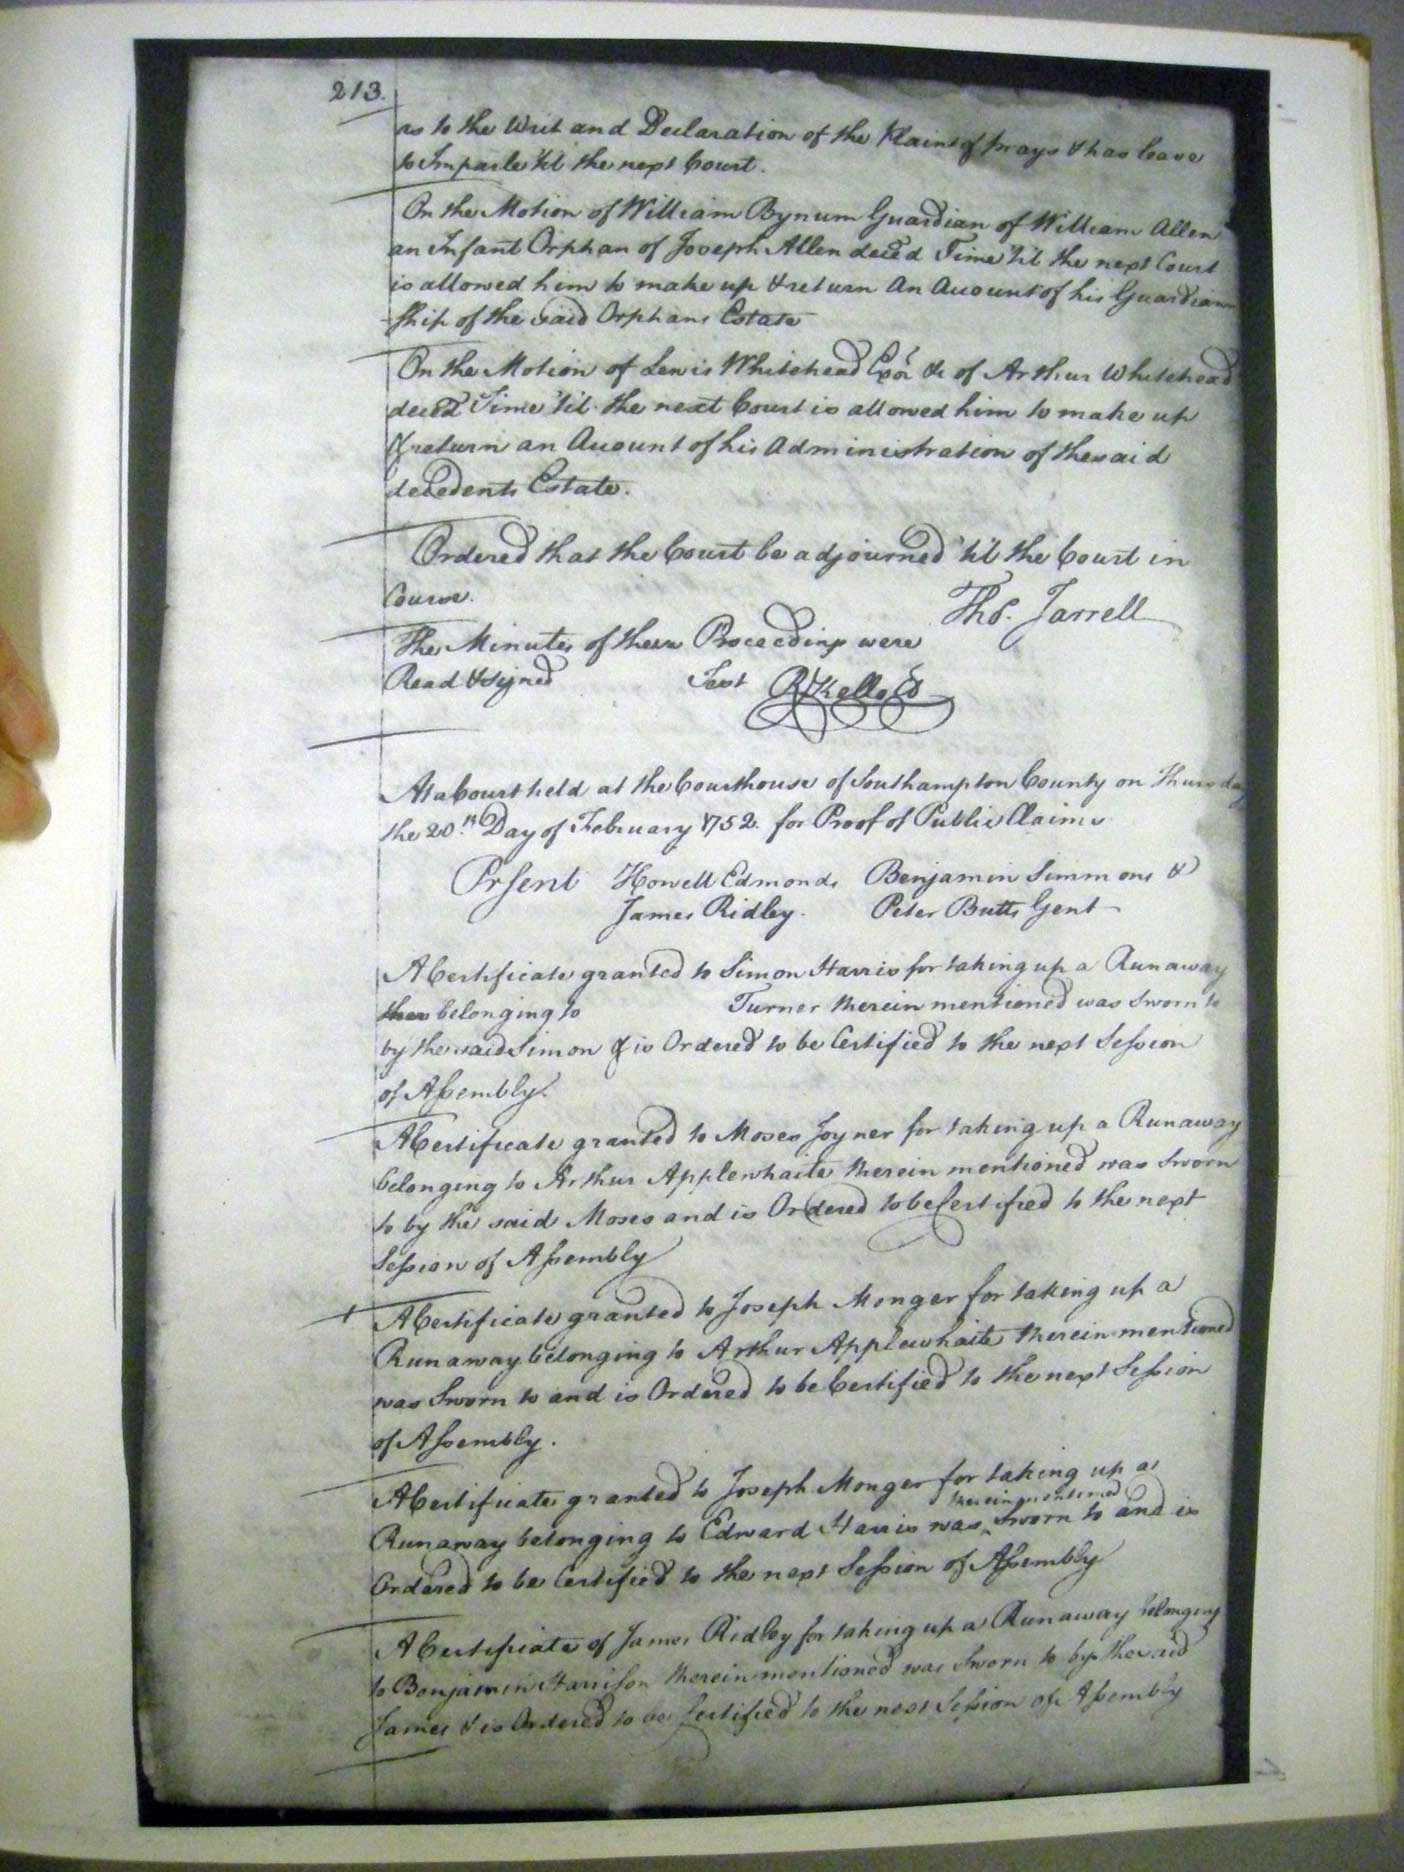 213.
as to the Writ and Declaration of the Plaint prays & has leave
to Imparle 'til the next Court.
On the Motion of William Bynum Guardian of William Allen
an Infant Orphan of Joseph Allen deced Time 'til the next Court
is allowed him to make up & return An Account of his Guardian
ship of the said Orphans Estate
On the Motion of Lewis Whitehead Exor &c of Arthur Whitehead
deced Time 'til the next Court is allowed him to make up
& return an Account of his Administration of the said
decedents Estate.
Ordered that the Court be adjourned 'til the Court in
Course.
Thos. Jarrell
The Minutes of these Proceedings were
Read & signed Test R Kello Cl
At a Court held at the Courthouse of Southampton County on Thursday
the 20th Day of February 1752. for Proof of Public Claims
Prsent Howell Edmonds Benjamin Simmons &
James Ridley. Peter Butts Gent
A Certificate granted to Simon Harris for taking up a Runaway
belonging to Turner therein mentioned was Sworn to
by the said Simon & is Ordered to be Certified to the next Session
of Assembly.
A Certificate granted to Moses Joyner for taking up a Runaway
belonging to Arthur Applewhaite therein mentioned was Sworn
to by the said Moses and is Ordered to be Certified to the next
Session of Assembly
A Certificate granted to Joseph Monger for taking up a
Runaway belonging to Arthur Applewhaite therein mentioned
was Sworn to and is Ordered to be Certified to the next Session
of Assembly.
A Certificate granted to Joseph Monger for taking up a
therein mentioned
Runaway belonging to Edward Harris was Sworn to and is
Ordered to be Certified to the next Session of Assembly
A Certificate of James Ridley for taking up a Runaway belonging
to Benjamin Harrison therein mentioned was Sworn to by the said
James & is Ordered to be Certified to the next Session of Assembly